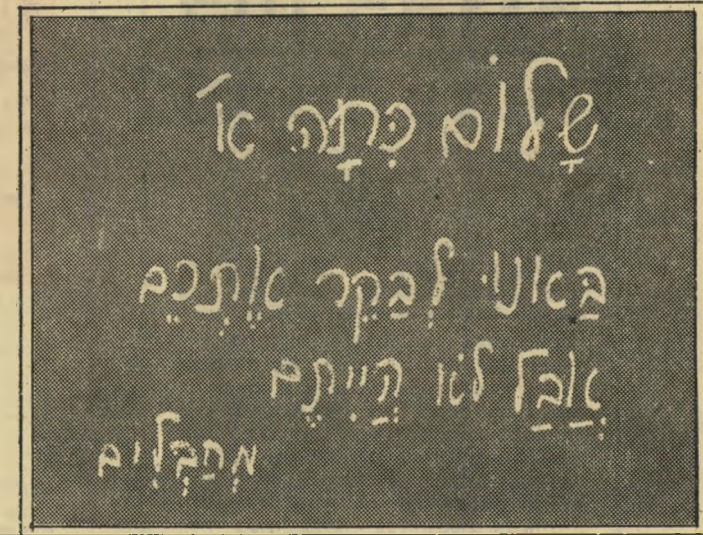 שָׁלוֹם כִּתָּה א'
בָּאנוּ לְבַקֵּר אֶתְכֶם
אֲבָל לֹא הֱיִיתֶם
מְחַבְּלִים